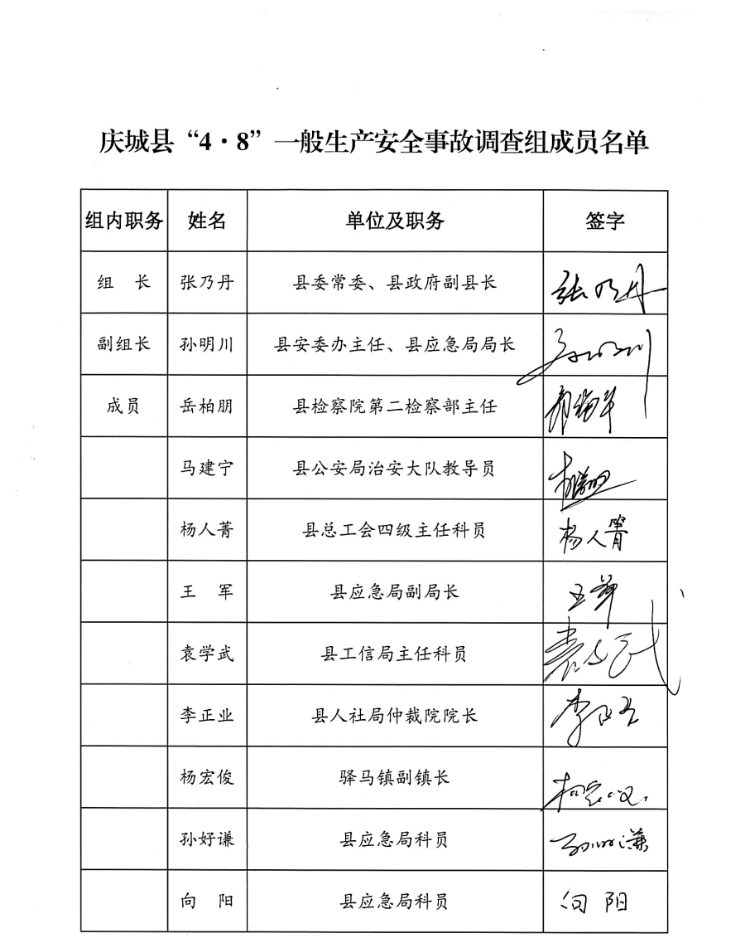 庆城县“4·8”一般生产安全事故调查组成员名单
组内职务 姓名 单位及职务 签字
组 长 张乃丹 县委常委、县政府副县长 张乃丹
副组长 孙明川 县安委办主任、县应急局局长 孙明川
成员 岳柏朋 县检察院第二检察部主任
马建宁 县公安局治安大队教导员
杨人菁 县总工会四级主任科员 杨人菁
王 军 县应急局副局长 王军
袁学武 县工信局主任科员 袁学武
李正业 县人社局仲裁院院长 李正业
杨宏俊 驿马镇副镇长 杨宏俊
孙好谦 县应急局科员 孙好谦
向 阳 县应急局科员 向阳